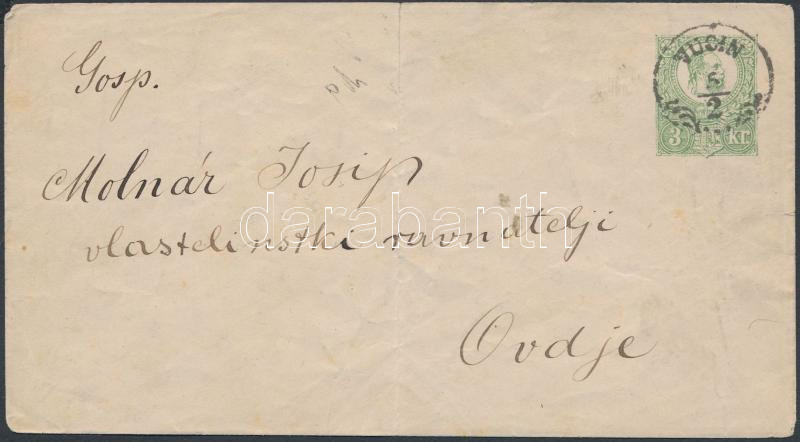 VUCIN
6
2
3 KR.
Gosp.
Molnár Josip
vlastelinstki ravnatelji
Ovdje
darabanth